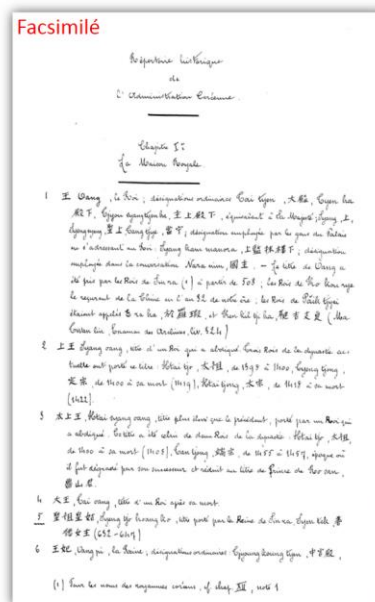 Facsimilé
Répertoire historique
de
L'Administration Coréenne
Chapitre I:
La Maison Royale
1 王 Oang, le Roi; désignations ordinaires Tai tjyen, 大殿, Tyen ha
殿下, 主上殿下, équivalent à Sa Majesté; Syang, 上,
聖上; désignation employée par les gens du Palais
en s'adressant au Roi: désignation
employée dans la conversation Nara nim, 國主. – Le titre de Oang a
été pris par les Rois de Sin ra (1) à partir de 503, les Rois de
le reçurent de la Chine en l'an 32 de notre ère; les Rois de Paik tjyei
étaient appelés
2 上王 Syang oang, titre d'un Roi qui a abdiqué. Trois Rois de la dynastie ac-
tuelle ont porté ce titre: Htai tjo, 太祖, de 1398 à 1400, Tyeng tjong,
定宗, de 1400 à sa mort (1419), Htai tjong, 太宗, de 1418 à sa mort
(1422).
3 太上王, Htai syang oang, titre plus élevé que le précédent, porté par un Roi qui
a abdiqué. Ce titre a été celui de deux Rois de la dynastie: Htai tjo, 太祖,
de 1400 à sa mort (1408), Tan tjong, 端宗, de 1455 à 1457, époque où
il fut dégradé par son successeur et réduit au titre de Prince de Ro san,
4 大王, Tai oang, titre d'un Roi après sa mort.
5 聖祖皇姑, Syeng tjo hoang ko, titre porté par la Reine de Sin ra,
(632-647)
6 王妃, Oang pi, la Reine; désignations ordinaires: 中宮殿,
(1) Pour les noms des royaumes coréens, cf. chap. XII, note 1